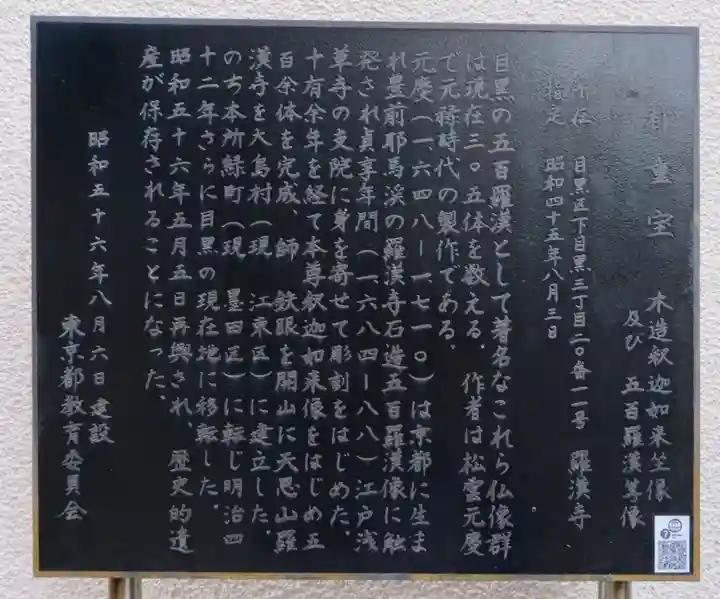 都重宝 木造釈迦如来坐像
及び 五百羅漢等像
所在 目黒区下目黒三丁目二〇番一一号 羅漢寺
指定 昭和四十五年八月三日
目黒の五百羅漢として著名なこれら仏像群
は現在三〇五体を数える。作者は松雲元慶
で元禄時代の製作である。
元慶(一、六四八ー一、七一〇)は京都に生ま
れ豊前耶馬渓の羅漢寺石造五百羅漢像に触
発され貞享年間(一、六八四ー八八)江戸浅
草寺の支院に身を寄せて彫刻をはじめた。
十有余年を経て本尊釈迦如来像をはじめ五
百余体を完成、師 鉄眼を開山に天恩山羅
漢寺を大島村(現 江東区)に建立した。
のち本所緑町(現 墨田区)に転じ明治四
十二年さらに目黒の現在地に移転した。
昭和五十六年五月五日再興され、歴史的遺
産が保存されることになった。
昭和五十六年八月六日建設
東京都教育委員会
7